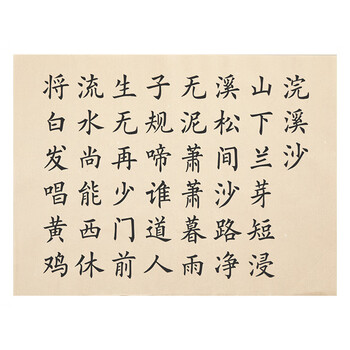 浣溪沙
山下兰芽短浸
溪松间沙路净
无泥萧萧暮雨
子规啼谁道人
生无再少门前
流水尚能西休
将白发唱黄鸡